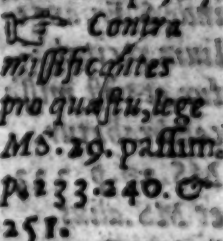 ☞ Contra
missificantes
pro quæstu, lege
MS. 29. passim.
p. 233. 240. &
251.